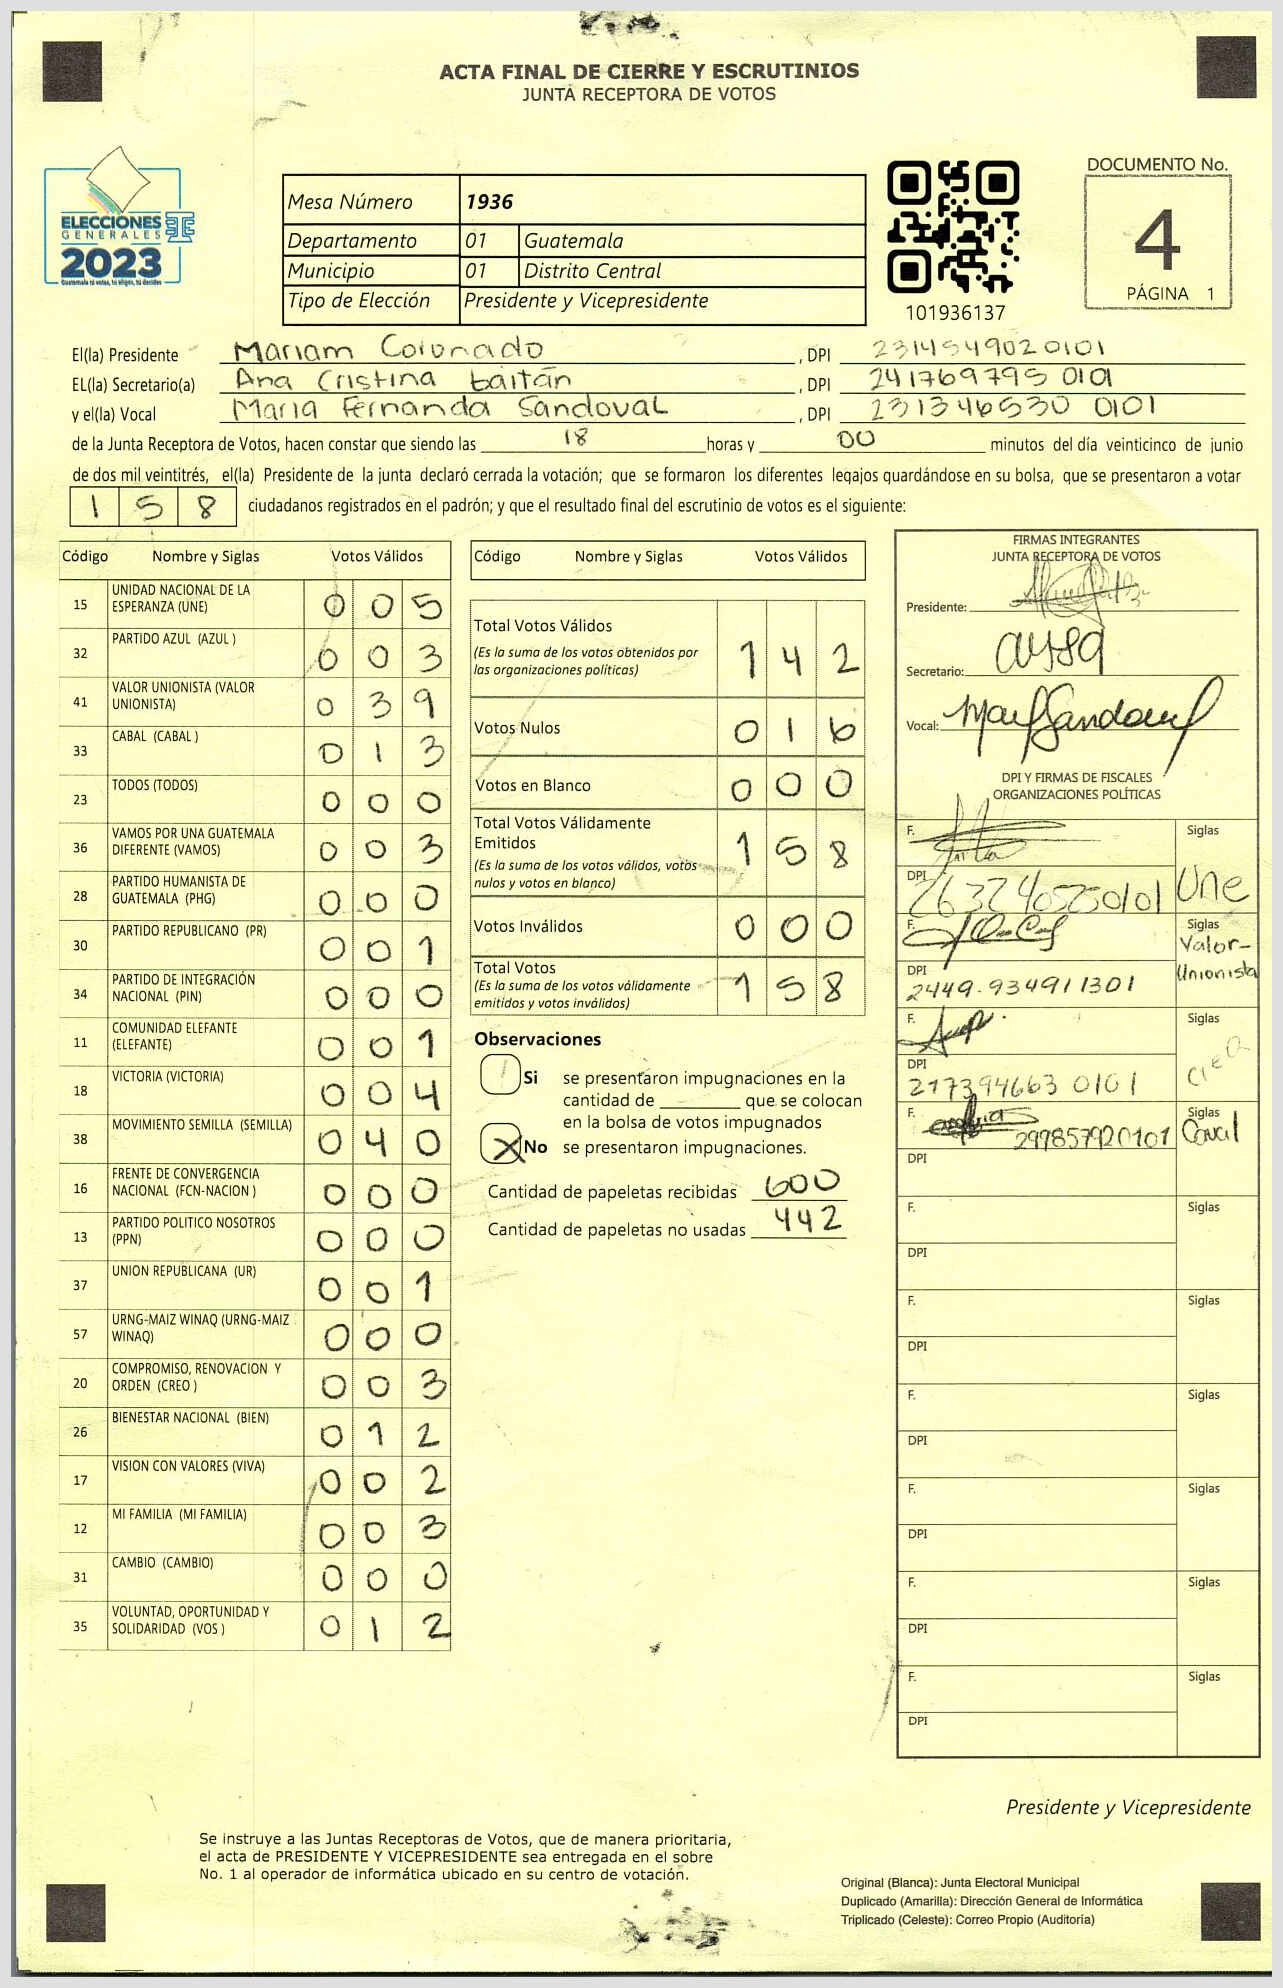 ACTA FINAL DE CIERRE Y ESCRUTINIOS
JUNTA RECEPTORA DE VOTOS
ELECCIONES
GENERALES
2023
Guatemala tú votas, tú eliges, tú decides
Mesa Número 1936
Departamento 01 Guatemala
Municipio 01 Distrito Central
Tipo de Elección Presidente y Vicepresidente
101936137
DOCUMENTO No.
4
PÁGINA 1
El(la) Presidente Mariam Coronado , DPI 2314549020101
EL(la) Secretario(a) Ana Cristina Gaitán , DPI 241769795 0101
y el(la) Vocal Maria Fernanda Sandoval , DPI 231346530 0101
de la Junta Receptora de Votos, hacen constar que siendo las 18 horas y 00 minutos del día veinticinco de junio
de dos mil veintitrés, el(la) Presidente de la junta declaró cerrada la votación; que se formaron los diferentes legajos guardándose en su bolsa, que se presentaron a votar
1 5 8 ciudadanos registrados en el padrón; y que el resultado final del escrutinio de votos es el siguiente:
Código Nombre y Siglas Votos Válidos
15 UNIDAD NACIONAL DE LA ESPERANZA (UNE) 0 0 5
32 PARTIDO AZUL (AZUL ) 0 0 3
41 VALOR UNIONISTA (VALOR UNIONISTA) 0 3 9
33 CABAL (CABAL ) 0 1 3
23 TODOS (TODOS) 0 0 0
36 VAMOS POR UNA GUATEMALA DIFERENTE (VAMOS) 0 0 3
28 PARTIDO HUMANISTA DE GUATEMALA (PHG) 0 0 0
30 PARTIDO REPUBLICANO (PR) 0 0 1
34 PARTIDO DE INTEGRACIÓN NACIONAL (PIN) 0 0 0
11 COMUNIDAD ELEFANTE (ELEFANTE) 0 0 1
18 VICTORIA (VICTORIA) 0 0 4
38 MOVIMIENTO SEMILLA (SEMILLA) 0 4 0
16 FRENTE DE CONVERGENCIA NACIONAL (FCN-NACION ) 0 0 0
13 PARTIDO POLITICO NOSOTROS (PPN) 0 0 0
37 UNION REPUBLICANA (UR) 0 0 1
57 URNG-MAIZ WINAQ (URNG-MAIZ WINAQ) 0 0 0
20 COMPROMISO, RENOVACION Y ORDEN (CREO ) 0 0 3
26 BIENESTAR NACIONAL (BIEN) 0 1 2
17 VISION CON VALORES (VIVA) 0 0 2
12 MI FAMILIA (MI FAMILIA) 0 0 3
31 CAMBIO (CAMBIO) 0 0 0
35 VOLUNTAD, OPORTUNIDAD Y SOLIDARIDAD (VOS ) 0 1 2
Código Nombre y Siglas Votos Válidos
Total Votos Válidos 1 4 2
(Es la suma de los votos obtenidos por
las organizaciones políticas)
Votos Nulos 0 1 6
Votos en Blanco 0 0 0
Total Votos Válidamente
Emitidos 1 5 8
(Es la suma de los votos válidos, votos
nulos y votos en blanco)
Votos Inválidos 0 0 0
Total Votos 1 5 8
(Es la suma de los votos válidamente
emitidos y votos inválidos)
Observaciones
Si se presentaron impugnaciones en la
cantidad de ________ que se colocan
en la bolsa de votos impugnados
X No se presentaron impugnaciones.
Cantidad de papeletas recibidas 600
Cantidad de papeletas no usadas 442
FIRMAS INTEGRANTES
JUNTA RECEPTORA DE VOTOS
Presidente:
Secretario:
Vocal: Sandoval
DPI Y FIRMAS DE FISCALES
ORGANIZACIONES POLÍTICAS
F. Siglas
DPI 2632405250101 Une
F. Siglas
Valor-
Unionista
DPI 2449-934911301
F. Siglas
DPI
217394663 0101
F. Siglas
299857920101 Caval
DPI
F. Siglas
DPI
F. Siglas
DPI
F. Siglas
DPI
F. Siglas
DPI
F. Siglas
DPI
F. Siglas
DPI
Presidente y Vicepresidente
Se instruye a las Juntas Receptoras de Votos, que de manera prioritaria,
el acta de PRESIDENTE Y VICEPRESIDENTE sea entregada en el sobre
No. 1 al operador de informática ubicado en su centro de votación.
Original (Blanca): Junta Electoral Municipal
Duplicado (Amarilla): Dirección General de Informática
Triplicado (Celeste): Correo Propio (Auditoría)